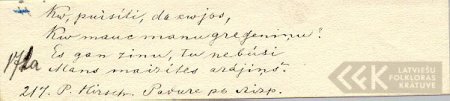 Kư, puisīti, da ewjos,
Kư mauc manu gredzeniņu?
Es gan zinu, tu nebūsi
171a
Mans maizītes arājiņš.
217. P. Hirsch. Padure pa Aizp.
LATVIEŠU
FOLKLORAS
KRĀTUVE